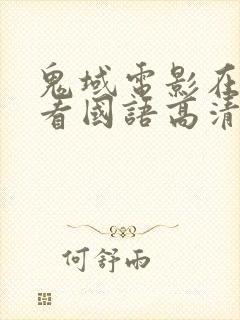 鬼域電影在
看國語高清
何舒雨